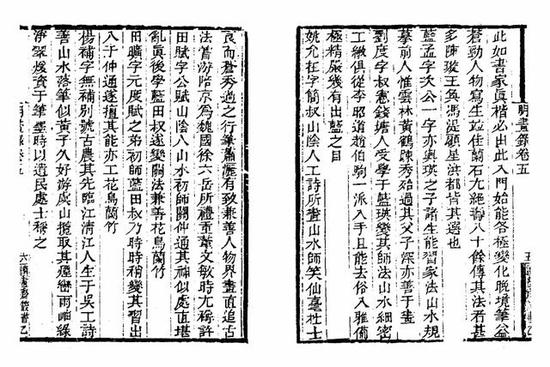 明畫錄卷五
五讀畫齋叢書乙
此如書家眞楷必由此入門始能各極變化晩境筆益
蒼勁人物寫生並佳蘭石尤絕壽八十餘傳其法者甚
多陳璇王奐馮湜顧星洪都皆其選也
藍孟字次公一字亦輿瑛之子諸生能習家法山水規
摹前人惟雲林黃鶴踈秀殆過其父子深亦善于畫
劉度字叔憲錢塘人受學于藍瑛變其師法山水細密
工緻俱從李昭道趙伯駒一派入手且能去俗入雅備
極精嚴幾有出藍之目
姚允在字簡叔山陰人工詩所畫山水師笑仙毫杜士
良而蒼秀過之行筆瀟灑有致兼善人物界畫直追古
法嘗游陪京爲魏國徐六岳所禮重葉文敏時尤稱許
田賦字公賦山陰人山水初師關仲通其神似處直堪
亂眞後學藍田叔遂變關法兼善花鳥蘭竹
田曠字元度賦之弟初師藍田叔乃時時稍變其習出
入于仲通遂擅其能亦工花鳥蘭竹
楊補字無補別號古農其先臨江清江人生于吳工詩
善山水落筆似黃子久好游虞山攬取其煙巒雨岫綠
淨翠煖資于筆墨時以遺民處士稱之
明畫錄卷五
六讀畫齋叢書乙